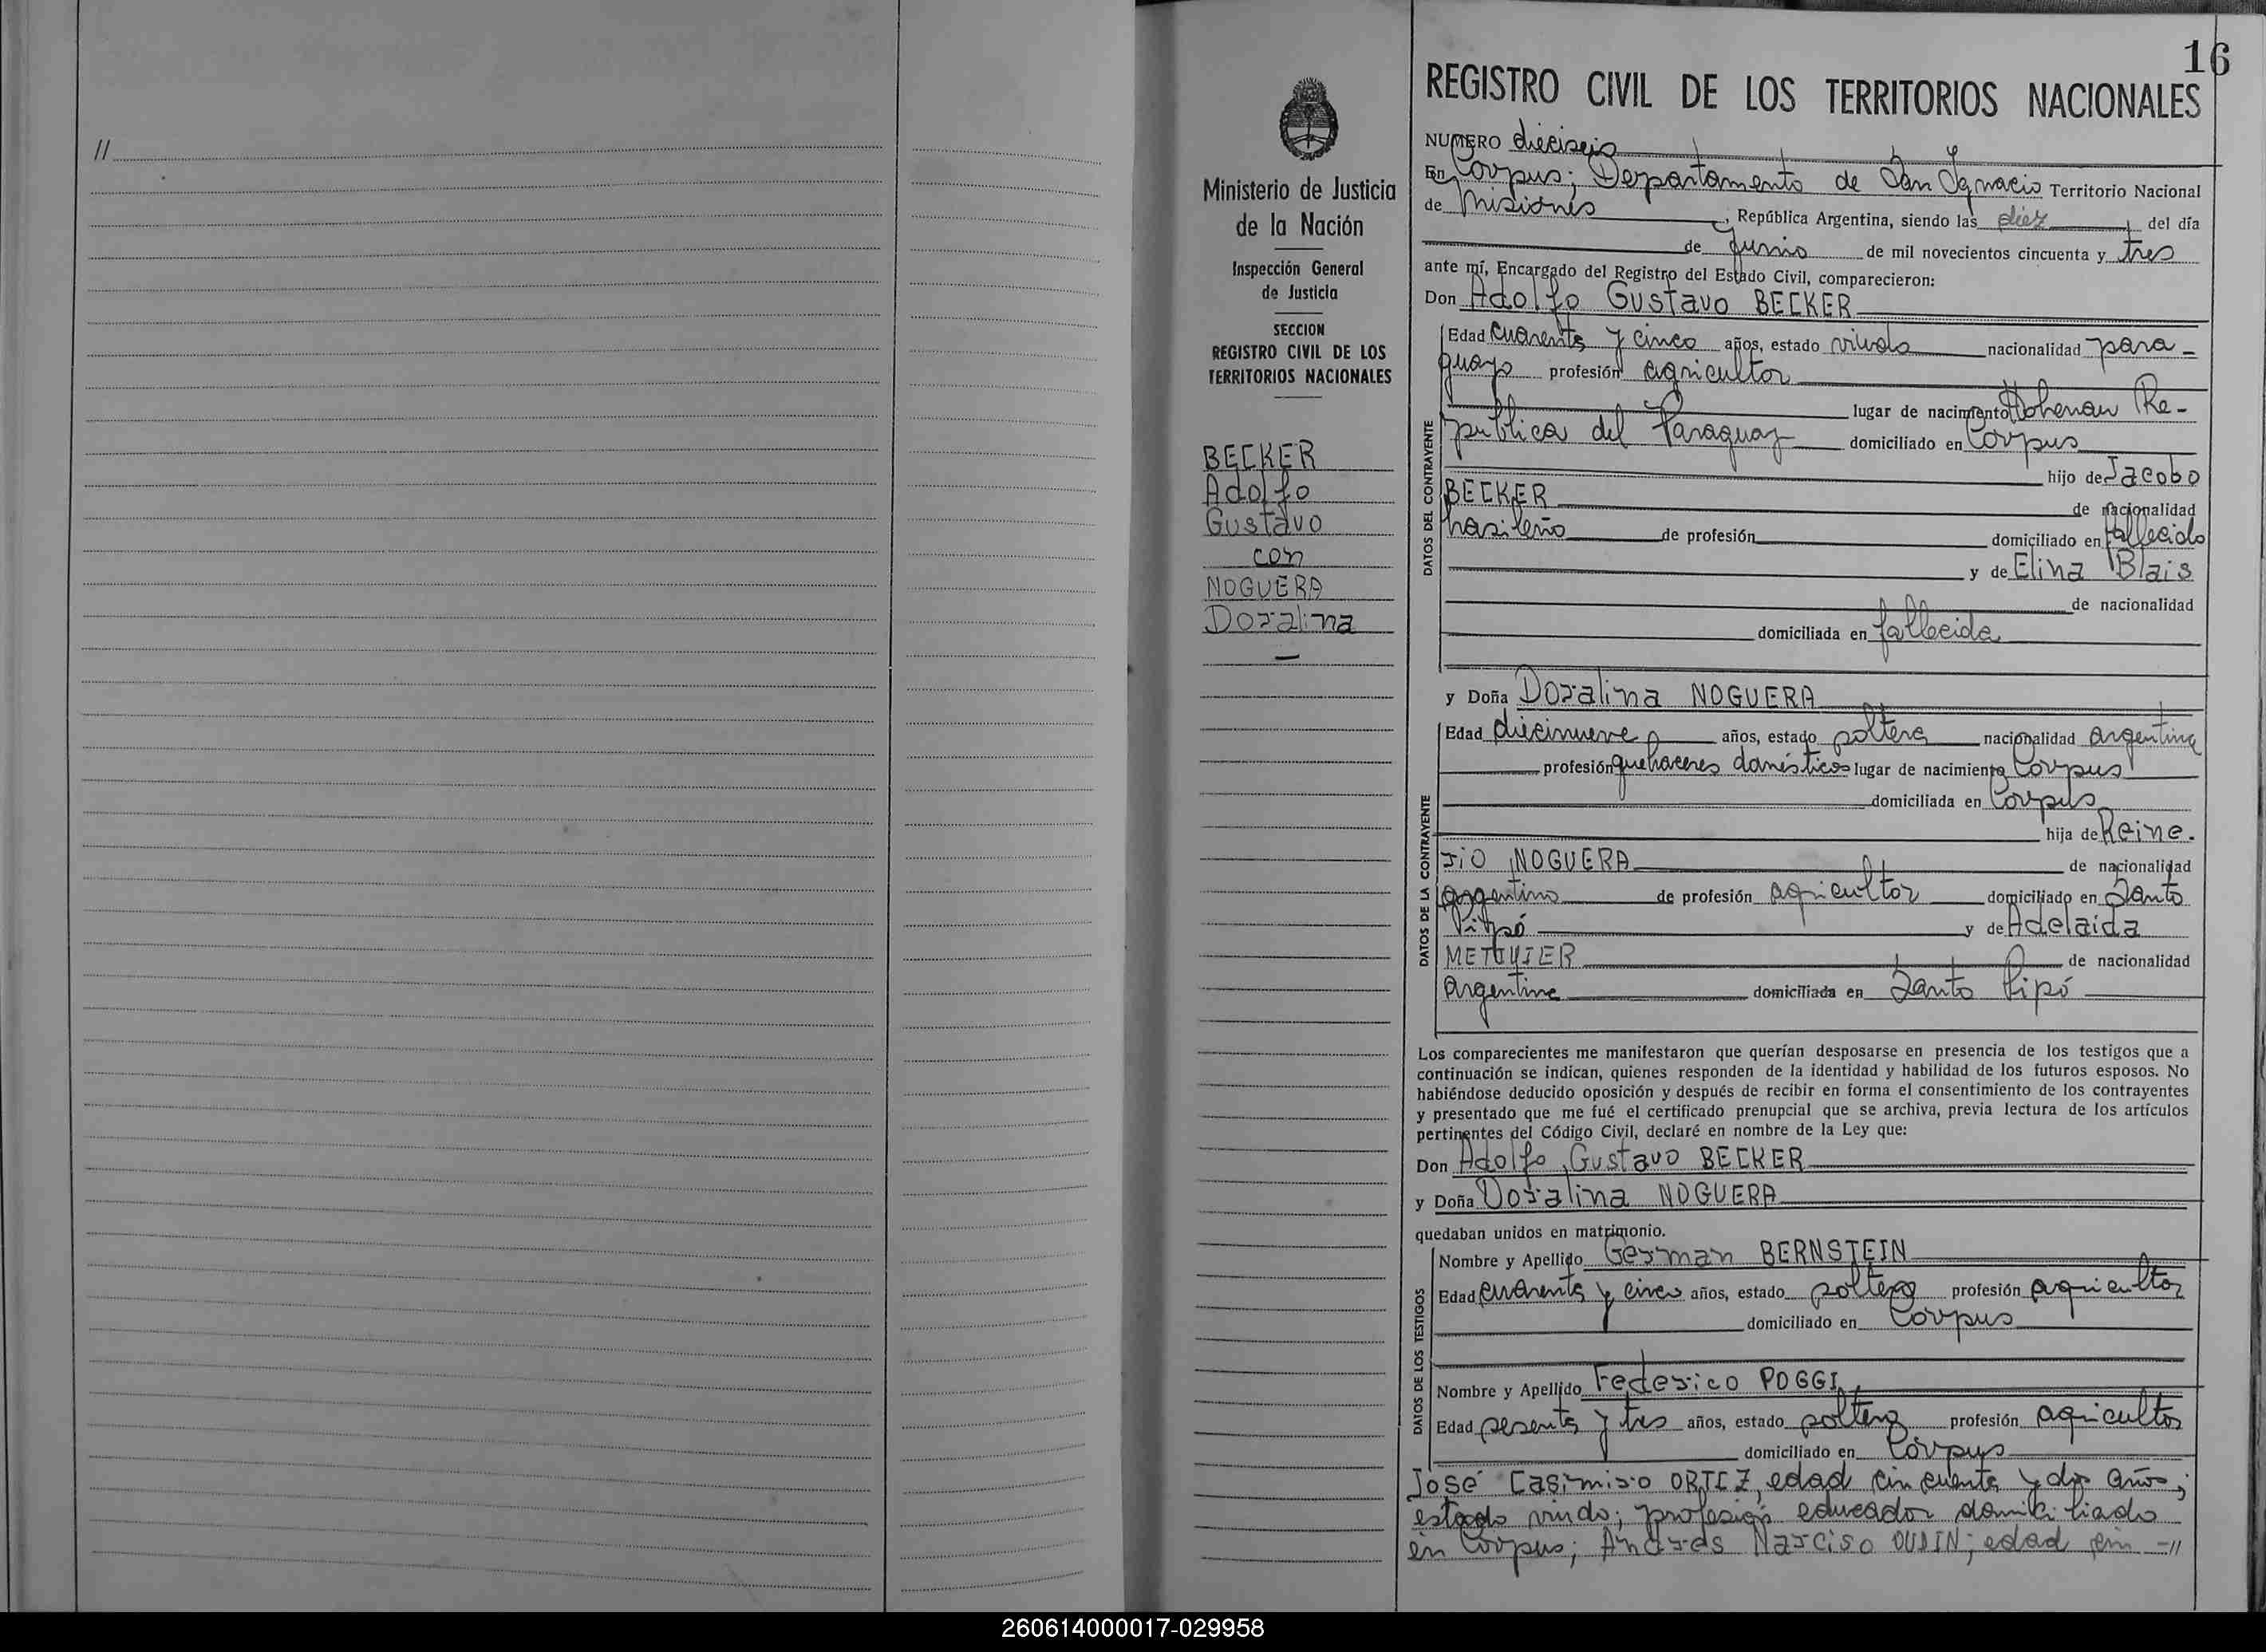 //
16
Ministerio de Justicia
de la Nación
Inspección General
de Justicia
SECCION
REGISTRO CIVIL DE LOS
TERRITORIOS NACIONALES
BECKER
Adolfo
Gustavo
con
NOGUERA
Doralina
REGISTRO CIVIL DE LOS TERRITORIOS NACIONALES
NUMERO dieciseis
En Corpus; Departamento de San Ignacio Territorio Nacional
de Misiones, República Argentina, siendo las diez del día
de Junio de mil novecientos cincuenta y tres
ante mí, Encargado del Registro del Estado Civil, comparecieron:
Don Adolfo Gustavo BECKER
DATOS DEL CONTRAYENTE
Edad cuarenta y cinco años, estado viudo nacionalidad para-
guayo profesión agricultor
lugar de nacimiento Hohenau Re-
publica del Paraguay domiciliado en Corpus
hijo de Jacobo
BECKER de nacionalidad
brasileño de profesión domiciliado en fallecido
y de Elina Blais
de nacionalidad
domiciliada en fallecida
y Doña Doralina NOGUERA
DATOS DE LA CONTRAYENTE
Edad diecinueve años, estado soltera nacionalidad argentina
profesión quehaceres domésticos lugar de nacimiento Corpus
domiciliada en Corpus
hija de Reine-
rio NOGUERA de nacionalidad
argentino de profesión agricultor domiciliado en Santo
Pipó y de Adelaida
de nacionalidad
Argentina domiciliada en Santo Pipó
Los comparecientes me manifestaron que querían desposarse en presencia de los testigos que a
continuación se indican, quienes responden de la identidad y habilidad de los futuros esposos. No
habiéndose deducido oposición y después de recibir en forma el consentimiento de los contrayentes
y presentado que me fué el certificado prenupcial que se archiva, previa lectura de los artículos
pertinentes del Código Civil, declaré en nombre de la Ley que:
Don Adolfo Gustavo BECKER
y Doña Doralina NOGUERA
quedaban unidos en matrimonio.
DATOS DE LOS TESTIGOS
Nombre y Apellido German BERNSTEIN
Edad cuarenta y cinco años, estado soltero profesión agricultor
domiciliado en Corpus
Nombre y Apellido Federico POGGI
Edad sesenta y tres años, estado soltero profesión agricultor
domiciliado en Corpus
José Casimiro ORTIZ, edad cincuenta y dos años;
estado viudo; profesión educador domiciliado
en Corpus; Andrés Narciso OUDIN; edad cin-//
260614000017-029958